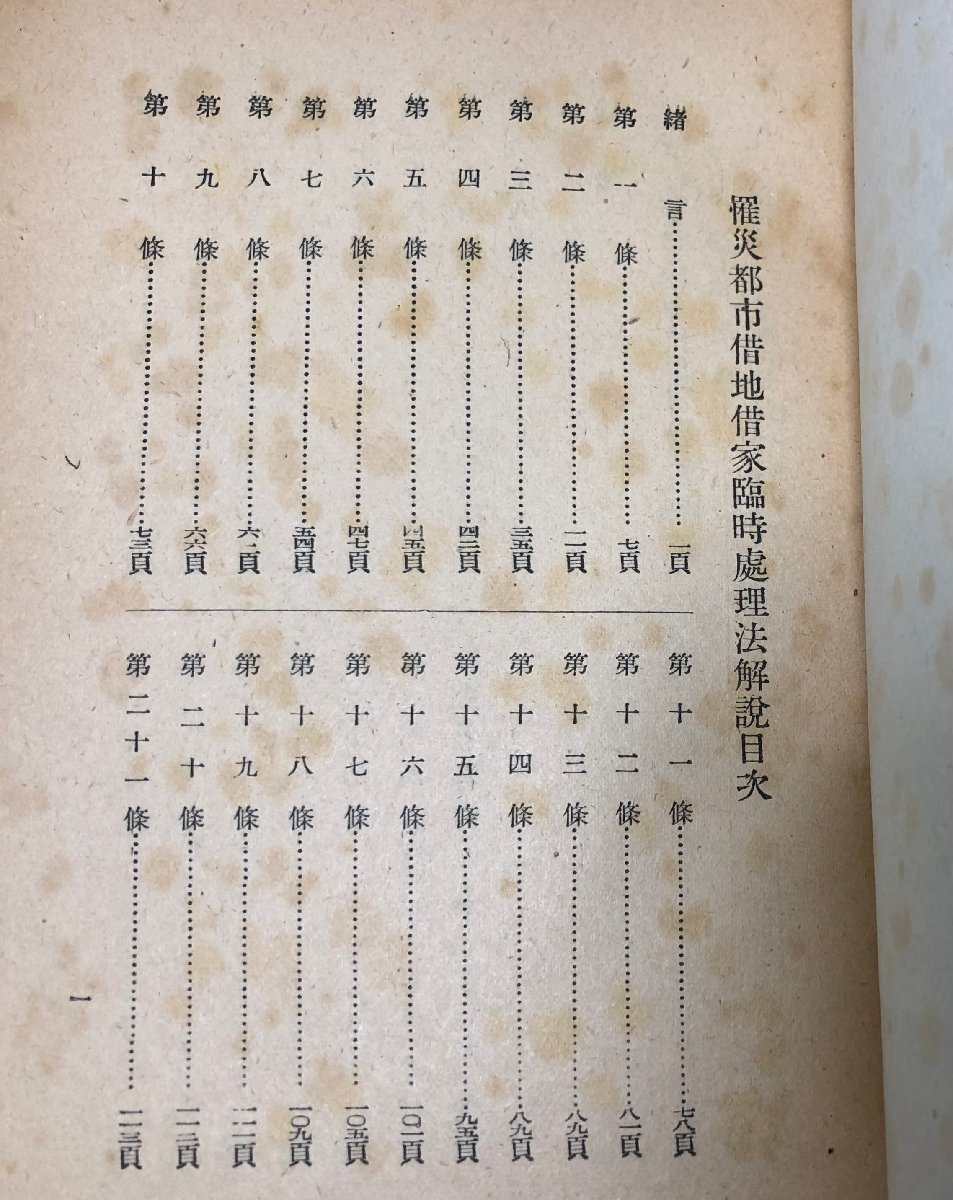 罹災都市借地借家臨時處理法解說目次
緒言……………………一頁
第一條……………………七頁
第二條……………………一一頁
第三條……………………三五頁
第四條……………………四二頁
第五條……………………四五頁
第六條……………………四七頁
第七條……………………五四頁
第八條……………………六一頁
第九條……………………六六頁
第十條……………………七三頁
第十一條……………………七八頁
第十二條……………………八一頁
第十三條……………………八九頁
第十四條……………………八九頁
第十五條……………………九五頁
第十六條……………………一〇二頁
第十七條……………………一〇五頁
第十八條……………………一〇九頁
第十九條……………………一一一頁
第二十條……………………一一二頁
第二十一條……………………一一三頁
一